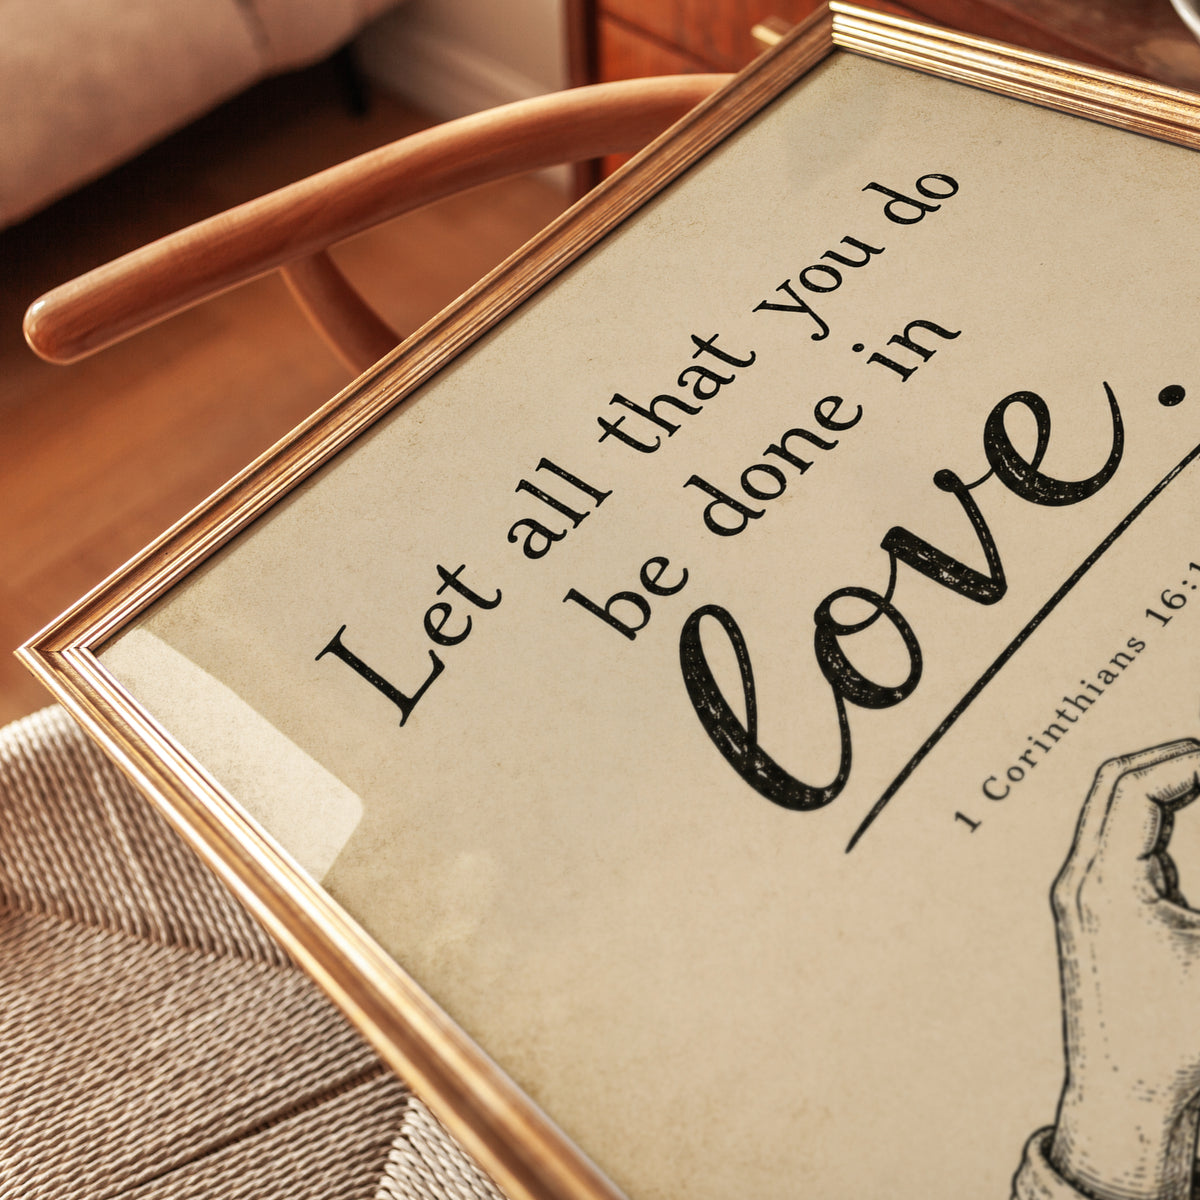 Let all that you do
be done in
love.
1 Corinthians 16:1